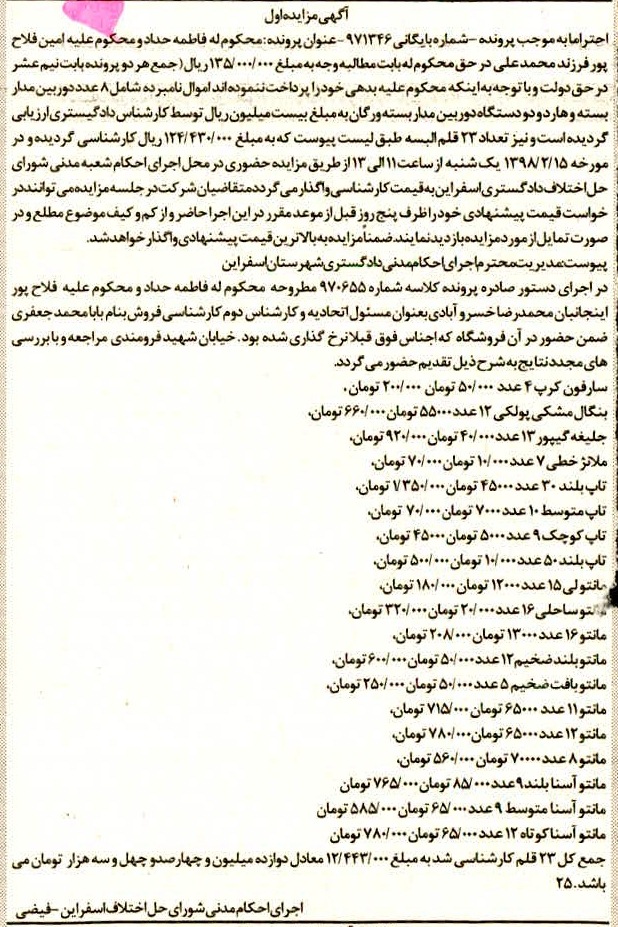 آگهی مزایده اول
احتراما به موجب پرونده -شماره بایگانی ۹۷۱۳۴۶ -عنوان پرونده: محکوم له فاطمه حداد و محکوم علیه امین فلاح
پور فرزند محمد علی در حق محکوم له بابت مطالبه وجه به مبلغ ۱۳۵/۰۰۰/۰۰۰ ریال (جمع هر دو پرونده بابت نیم عشر
در حق دولت و با توجه به اینکه محکوم علیه بدهی خود را پرداخت ننموده اند اموال نامبرده شامل ۸ عدد دوربین مدار
بسته و هارد و دو دستگاه دوربین مدار بسته ورگان به مبلغ بیست میلیون ریال توسط کارشناس دادگستری ارزیابی
گردیده است و نیز تعداد ۲۳ قلم البسه طبق لیست پیوست که به مبلغ ۱۲۴/۴۳۰/۰۰۰ ریال کارشناسی گردیده و در
مورخه ۱۳۹۸/۲/۱۵ یک شنبه از ساعت ۱۱ الی ۱۳ از طریق مزایده حضوری در محل اجرای احکام شعبه مدنی شورای
حل اختلاف دادگستری اسفراین به قیمت کارشناسی واگذار می گردد متقاضیان شرکت در جلسه مزایده می توانند در
خواست قیمت پیشنهادی خود را ظرف پنج روز قبل از موعد مقرر در این اجرا حاضر و از کم و کیف موضوع مطلع و در
صورت تمایل از مورد مزایده بازدید نمایند. ضمناً مزایده به بالاترین قیمت پیشنهادی واگذار خواهد شد.
پیوست: مدیریت محترم اجرای احکام مدنی دادگستری شهرستان اسفراین
در اجرای دستور صادره پرونده کلاسه شماره ۹۷۰۶۵۵ مطروحه محکوم له فاطمه حداد و محکوم علیه فلاح پور
اینجانبان محمدرضا خسرو آبادی بعنوان مسئول اتحادیه و کارشناس دوم کارشناسی فروش بنام بابا محمد جعفری
ضمن حضور در آن فروشگاه که اجناس فوق قبلا نرخ گذاری شده بود. خیابان شهید فرومندی مراجعه و با بررسی
های مجدد نتایج به شرح ذیل تقدیم حضور می گردد.
سارفون کرپ ۴ عدد ۵۰/۰۰۰ تومان ۲۰۰/۰۰۰ تومان،
بنگال مشکی پولکی ۱۲ عدد ۵۵۰۰۰ تومان ۶۶۰/۰۰۰ تومان،
جلیغه گیپور ۱۳ عدد ۴۰/۰۰۰ تومان ۹۲۰/۰۰۰ تومان،
ملانژ خطی ۷ عدد ۱۰/۰۰۰ تومان ۷۰/۰۰۰ تومان،
تاپ بلند ۳۰ عدد ۴۵۰۰۰ تومان ۱/۳۵۰/۰۰۰ تومان،
تاپ متوسط ۱۰ عدد ۷۰۰۰ تومان ۷۰/۰۰۰ تومان،
تاپ کوچک ۹ عدد ۵۰۰۰ تومان ۴۵۰۰۰ تومان،
تاپ بلند ۵۰ عدد ۱۰/۰۰۰ تومان ۵۰۰/۰۰۰ تومان،
مانتو لی ۱۵ عدد ۱۲۰۰۰ تومان ۱۸۰/۰۰۰ تومان،
مانتو ساحلی ۱۶ عدد ۲۰/۰۰۰ تومان ۳۲۰/۰۰۰ تومان،
مانتو ۱۶ عدد ۱۳۰۰۰ تومان ۲۰۸/۰۰۰ تومان،
مانتو بلند ضخیم ۱۲ عدد ۵۰/۰۰۰ تومان ۶۰۰/۰۰۰ تومان،
مانتو بافت ضخیم ۵ عدد ۵۰/۰۰۰ تومان ۲۵۰/۰۰۰ تومان،
مانتو ۱۱ عدد ۶۵۰۰۰ تومان ۷۱۵/۰۰۰ تومان،
مانتو ۱۲ عدد ۶۵۰۰۰ تومان ۷۸۰/۰۰۰ تومان،
مانتو ۸ عدد ۷۰۰۰۰ تومان ۵۶۰/۰۰۰ تومان،
مانتو آسنا بلند ۹ عدد ۸۵/۰۰۰ تومان ۷۶۵/۰۰۰ تومان
مانتو آسنا متوسط ۹ عدد ۶۵/۰۰۰ تومان ۵۸۵/۰۰۰ تومان
مانتو آسنا کوتاه ۱۲ عدد ۶۵/۰۰۰ تومان ۷۸۰/۰۰۰ تومان
جمع کل ۲۳ قلم کارشناسی شد به مبلغ ۱۲/۴۴۳/۰۰۰ معادل دوازده میلیون و چهارصد و چهل و سه هزار تومان می
باشد. ۲۵
اجرای احکام مدنی شورای حل اختلاف اسفراین -فیضی